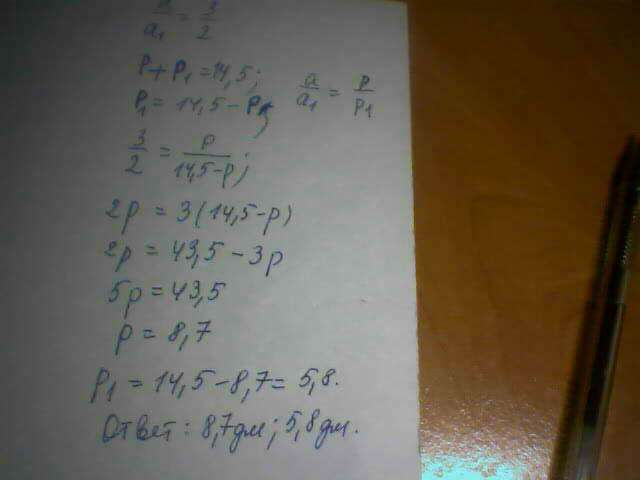 a/a₁ = 3/2
P + P₁ = 14,5;
P₁ = 14,5 - P;
a/a₁ = P/P₁
3/2 = P/(14,5-p);
2p = 3(14,5-p)
2p = 43,5 - 3p
5p = 43,5
p = 8,7
P₁ = 14,5 - 8,7 = 5,8.
Ответ: 8,7дм; 5,8дм.